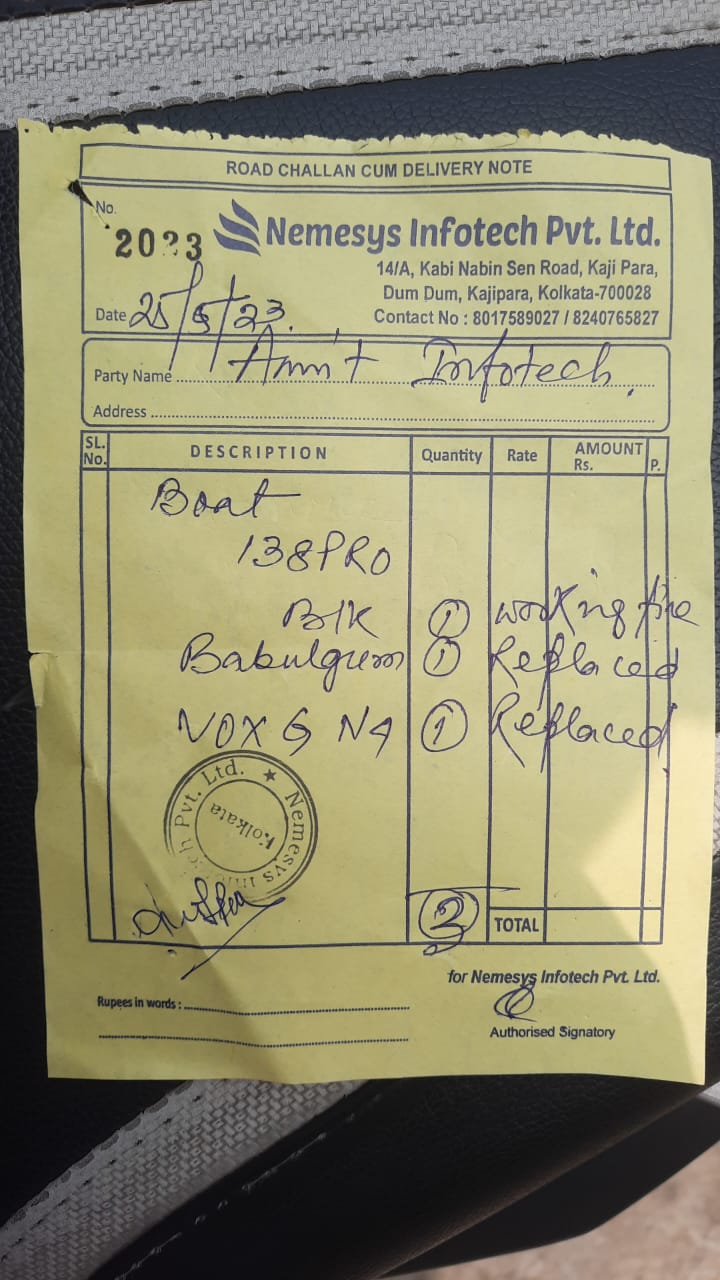 ROAD CHALLAN CUM DELIVERY NOTE
No.
2023
Nemesys Infotech Pvt. Ltd.
14/A, Kabi Nabin Sen Road, Kaji Para,
Dum Dum, Kajipara, Kolkata-700028
Contact No : 8017589027 / 8240765827
Date 25/5/23.
Party Name Amit Infotech.
Address
SL. No. DESCRIPTION Quantity Rate AMOUNT Rs. P.
Boat
138PRO
Blk 1 working fine
Babulgum 1 Replaced
VOX G N4 1 Replaced
Nemesys Infotech Pvt. Ltd. ★
Kolkata
3 TOTAL
for Nemesys Infotech Pvt. Ltd.
Rupees in words :
Authorised Signatory